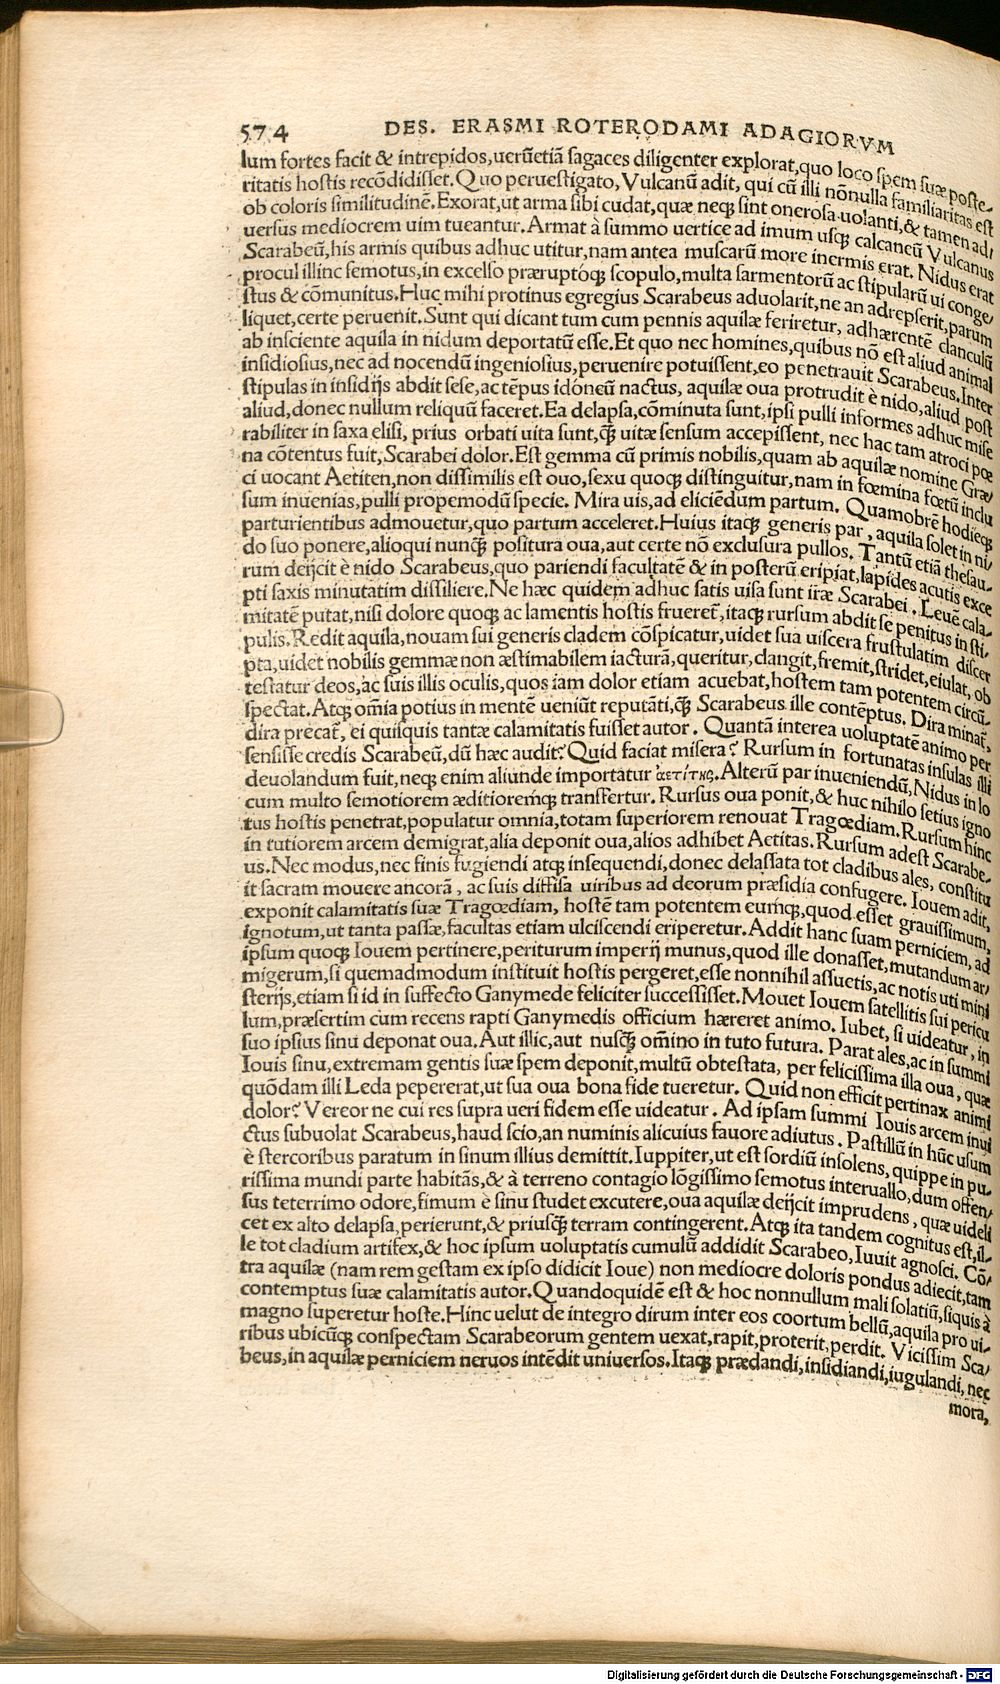 574 DES. ERASMI ROTERODAMI ADAGIORVM
lum fortes facit & intrepidos, uerūetiā sagaces diligenter explorat, quo loco spem suæ poste-
ritatis hostis recōdidisset. Quo peruestigato, Vulcanū adit, qui cū illi nōnulla familiaritas est
ob coloris similitudinē. Exorat, ut arma sibi cudat, quæ neqꝫ sint onerosa uolanti, & tamen ad/
uersus mediocrem uim tueantur. Armat à summo uertice ad imum usqꝫ calcaneū Vulcanus
Scarabeū, his armis quibus adhuc utitur, nam antea muscarū more inermis erat. Nidus erat
procul illinc semotus, in excelso præruptoqꝫ scopulo, multa sarmentorū ac stipularū ui conge/
stus & cōmunitus. Huc mihi protinus egregius Scarabeus aduolarit, ne an adrepserit, parum
liquet, certe peruenit. Sunt qui dicant tum cum pennis aquilæ feriretur, adhærentē clanculū
ab insciente aquila in nidum deportatū esse. Et quo nec homines, quibus nō est aliud animal
insidiosius, nec ad nocendū ingeniosius, peruenire potuissent, eo penetrauit Scarabeus. Inter
stipulas in insidijs abdit sese, ac tēpus idoneū nactus, aquilæ oua protrudit è nido, aliud post
aliud, donec nullum reliquū faceret. Ea delapsa, cōminuta sunt, ipsi pulli informes adhuc mise
rabiliter in saxa elisi, prius orbati uita sunt, q̄ꝫ uitæ sensum accepissent, nec hac tam atroci pœ
na cōtentus fuit, Scarabei dolor. Est gemma cū primis nobilis, quam ab aquilæ nomine Græ/
ci uocant Aetiten, non dissimilis est ouo, sexu quoqꝫ distinguitur, nam in fœmina fœtū inclu
sum inuenias, pulli propemodū specie. Mira uis, ad eliciēdum partum. Quamobrē hodieqꝫ
parturientibus admouetur, quo partum acceleret. Huius itaqꝫ generis par, aquila solet in ni/
do suo ponere, alioqui nunq̄ꝫ positura oua, aut certe nō exclusura pullos. Tantū etiā thesau-
rum deijcit è nido Scarabeus, quo pariendi facultatē & in posterū eripiat, lapides acutis exce
pti saxis minutatim dissiliere. Ne hæc quidem adhuc satis uisa sunt iræ Scarabei. Leuē cala-
mitatē putat, nisi dolore quoqꝫ ac lamentis hostis frueret̄, itaqꝫ rursum abdit se penitus in sti-
pulis. Redit aquila, nouam sui generis cladem cōspicatur, uidet sua uiscera frustulatim discer
pta, uidet nobilis gemmæ non æstimabilem iacturā, queritur, clangit, fremit, stridet, eiulat, ob
testatur deos, ac suis illis oculis, quos iam dolor etiam acuebat, hostem tam potentem circū-
spectat. Atqꝫ oīmia potius in mentē ueniūt reputāti, q̄ꝫ Scarabeus ille contēptus. Dira minat̄,
dira precat̄, ei quisquis tantæ calamitatis fuisset autor. Quantā interea uoluptatē animo per
sensisse credis Scarabeū, dū hæc audit? Quid faciat misera? Rursum in fortunatas insulas illi
deuolandum fuit, neqꝫ enim aliunde importatur ἀετίτης. Alterū par inueniendū, Nidus in lo
cum multo semotiorem æditioremqꝫ transfertur. Rursus oua ponit, & huc nihilo setius igno
tus hostis penetrat, populatur omnia, totam superiorem renouat Tragœdiam. Rursum hinc
in tutiorem arcem demigrat, alia deponit oua, alios adhibet Aetitas. Rursum adest Scarabe-
us. Nec modus, nec finis fugiendi atqꝫ insequendi, donec delassata tot cladibus ales, constitu
it sacram mouere ancorā, ac suis diffisa uiribus ad deorum præsidia confugere. Iouem adit,
exponit calamitatis suæ Tragœdiam, hostē tam potentem eumqꝫ, quod esset grauissimum,
ignotum, ut tanta passæ, facultas etiam ulciscendi eriperetur. Addit hanc suam perniciem, ad
ipsum quoqꝫ Iouem pertinere, periturum imperij munus, quod ille donasset, mutandum ar/
migerum, si quemadmodum instituit hostis pergeret, esse nonnihil assuetis, ac notis uti mini
sterijs, etiam si id in suffecto Ganymede feliciter successisset. Mouet Iouem satellitis sui pericu
lum, præsertim cum recens rapti Ganymedis officium hæreret animo. Iubet, si uideatur, in
suo ipsius sinu deponat oua. Aut illic, aut nusq̄ꝫ oīmino in tuto futura. Parat ales, ac in summi
Iouis sinu, extremam gentis suæ spem deponit, multū obtestata, per felicissima illa oua, quæ
quōdam illi Leda pepererat, ut sua oua bona fide tueretur. Quid non efficit pertinax animi
dolor? Vereor ne cui res supra ueri fidem esse uideatur. Ad ipsam summi Iouis arcem inui
ctus subuolat Scarabeus, haud scio, an numinis alicuius fauore adiutus. Pastillū in hūc usum
è stercoribus paratum in sinum illius demittit. Iuppiter, ut est sordiū insolens, quippe in pu-
rissima mundi parte habitās, & à terreno contagio lōgissimo semotus interuallo, dum offen/
sus teterrimo odore, fimum è sinu studet excutere, oua aquilæ deijcit imprudens, quæ uideli
cet ex alto delapsa, perierunt, & priusq̄ꝫ terram contingerent. Atqꝫ ita tandem cognitus est, il-
le tot cladium artifex, & hoc ipsum uoluptatis cumulū addidit Scarabeo, Iuuit agnosci. Cō/
tra aquilæ (nam rem gestam ex ipso didicit Ioue) non mediocre doloris pondus adiecit, tam
contemptus suæ calamitatis autor. Quandoquidē est & hoc nonnullum mali solatiū, si quis à
magno superetur hoste. Hinc uelut de integro dirum inter eos coortum bellū, aquila pro ui-
ribus ubicūqꝫ conspectam Scarabeorum gentem uexat, rapit, proterit, perdit. Vicissim Sca/
beus, in aquilæ perniciem neruos intēdit uniuersos. Itaqꝫ prædandi, insidiandi, iugulandi, nec
mora,
Digitalisierung gefördert durch die Deutsche Forschungsgemeinschaft - DFG